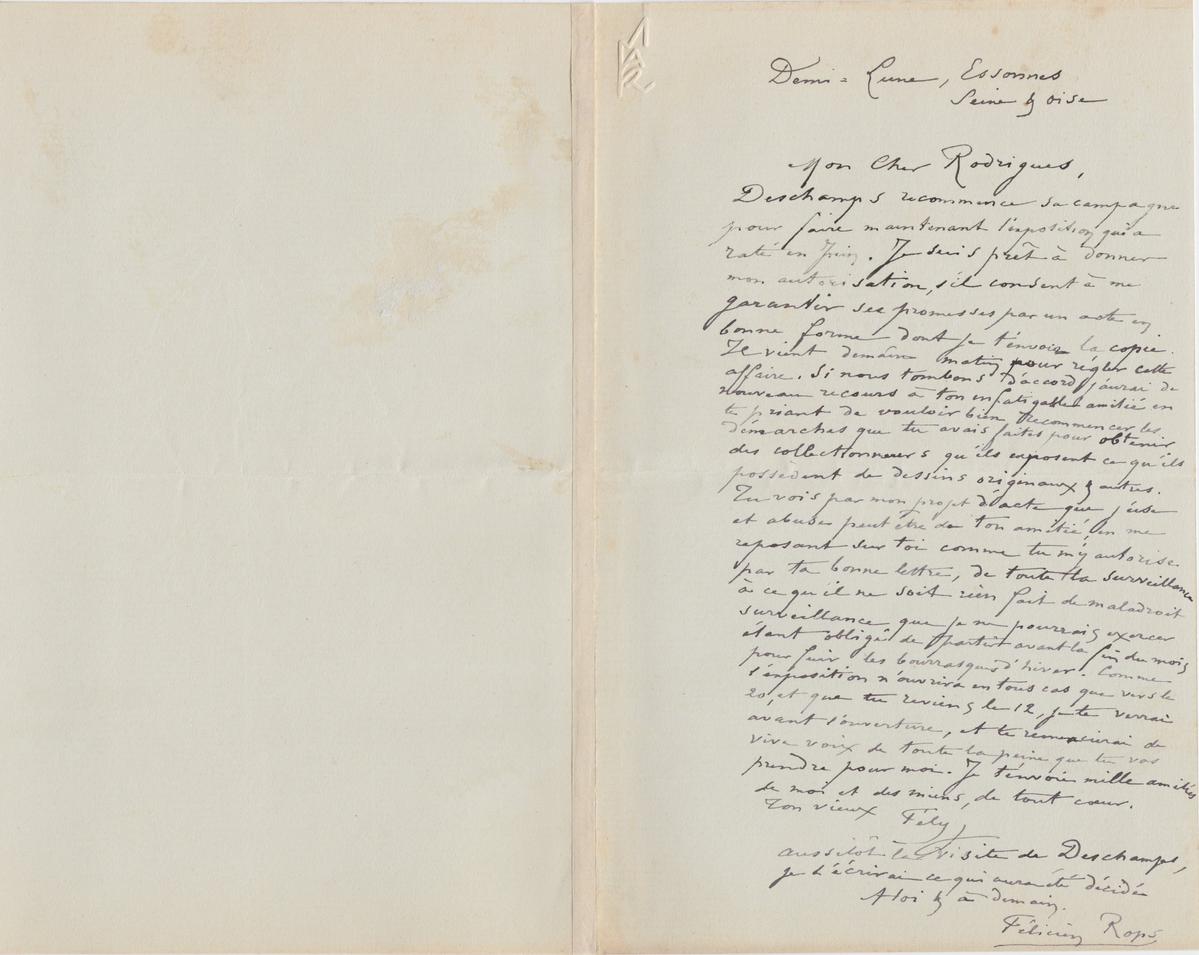 Demi=Lune, Essonnes
Seine & oise
Mon Cher Rodrigues,
Deschamps recommence sa campagne
pour faire maintenant l'exposition qui a
raté en Juin. Je suis prêt à donner
mon autorisation, s'il consent à me
garantir ses promesses par un acte en
bonne forme dont je t'envoie la copie.
Il vient demain matin pour régler cette
affaire. Si nous tombons d'accord j'aurai de
nouveau recours à ton infatigable amitié en
te priant de vouloir bien recommencer les
démarches que tu avais faites pour obtenir
des collectionneurs qu'ils exposent ce qu'ils
possèdent de dessins originaux & autres.
Tu vois par mon projet d'acte que j'use
et abuse peut être de ton amitié, en me
reposant sur toi comme tu m'y autorise
par ta bonne lettre, de toute la surveillance
à ce qu'il ne soit rien fait de maladroit
surveillance que je ne pourrais exercer
étant obligé de partir avant la fin du mois
pour fuir les bourrasques d'hiver. Comme
l'exposition n'ouvrira en tous cas que vers le
20, et que tu reviens le 12, je te verrai
avant l'ouverture, et te remercierai de
vive voix de toute la peine que tu vas
prendre pour moi. Je t'envoie mille amitiés
de moi et des miens, de tout cœur.
Ton vieux Fély
aussitôt la visite de Deschamps,
je t'écrirai ce qui aura été décidé
A toi & à demain.
Félicien Rops